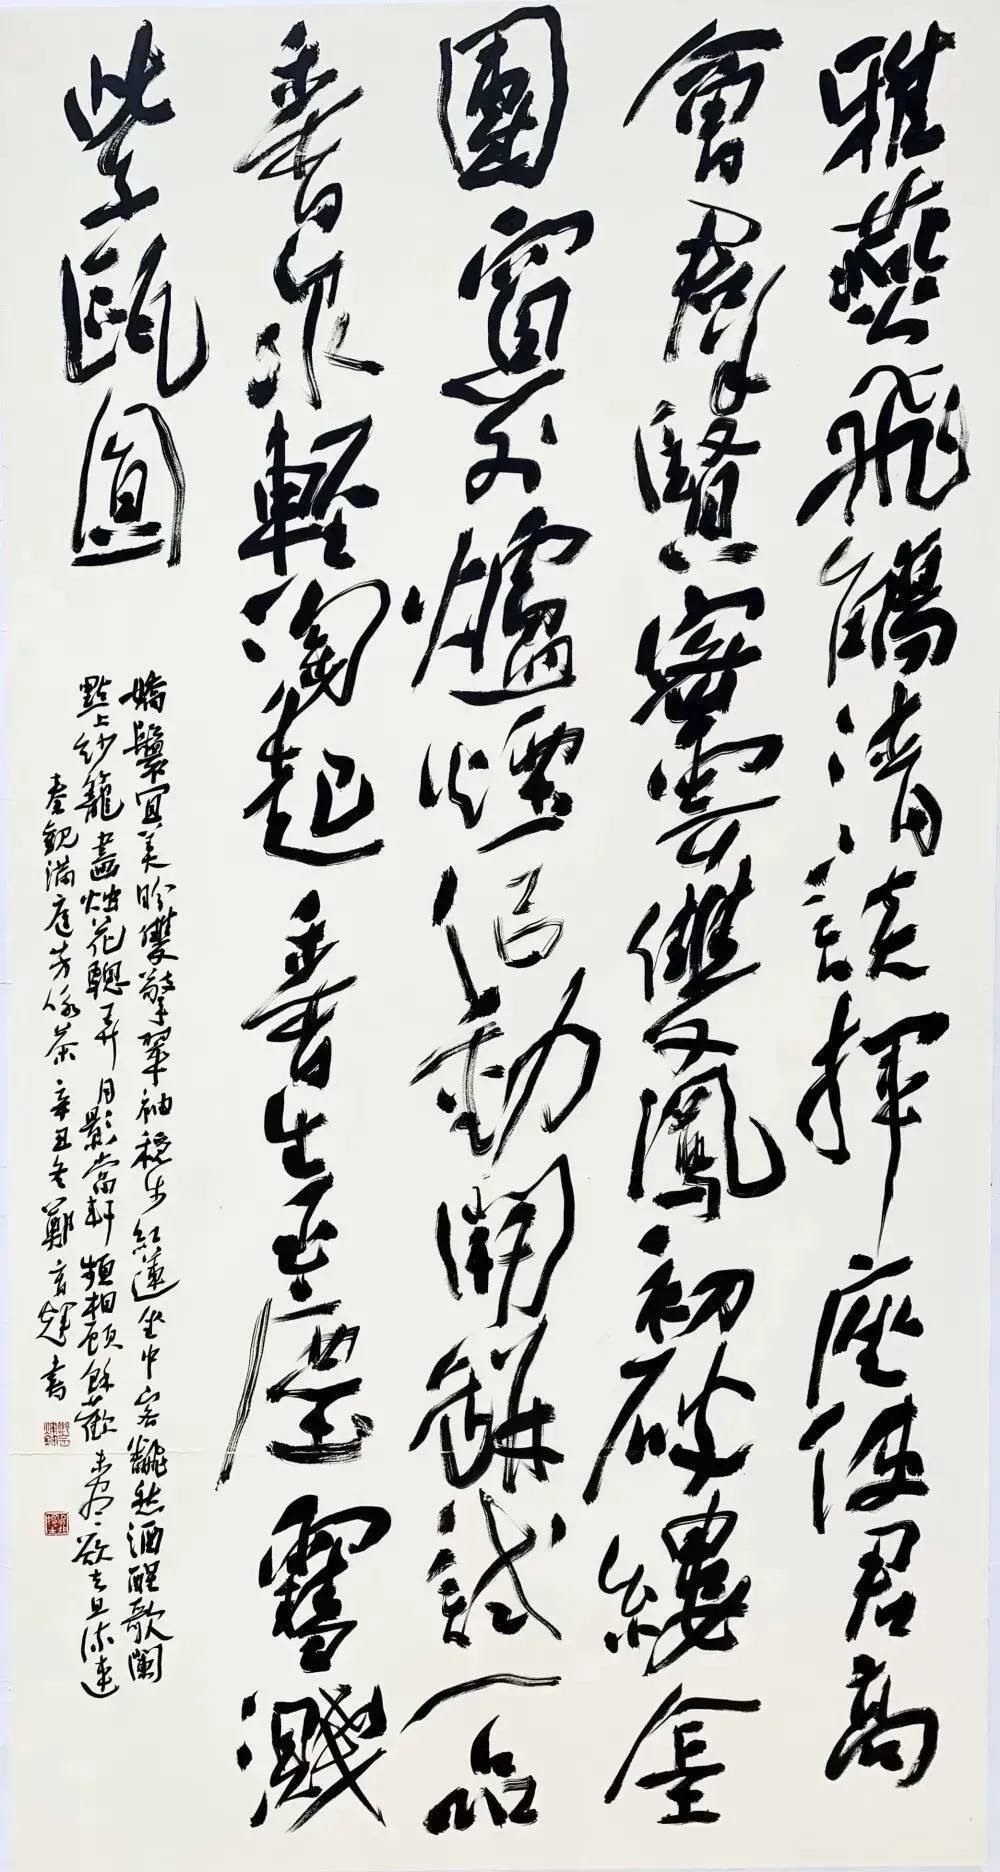 雅燕飛觴清談揮座使君高
會羣賢密雲雙鳳初破縷金
團窗外爐煙佀動開缾試一品
香泉輕淘起香生玉塵雪濺
紫甌圓
嬌鬟宜美盼雙擎翠袖穩步紅蓮坐中客翻愁酒醒歌闌
點上紗籠畫烛花驄弄月影當軒頻相顧餘歡未盡欲去且流連
秦觀滿庭芳詠茶 辛丑冬鄭育輝書